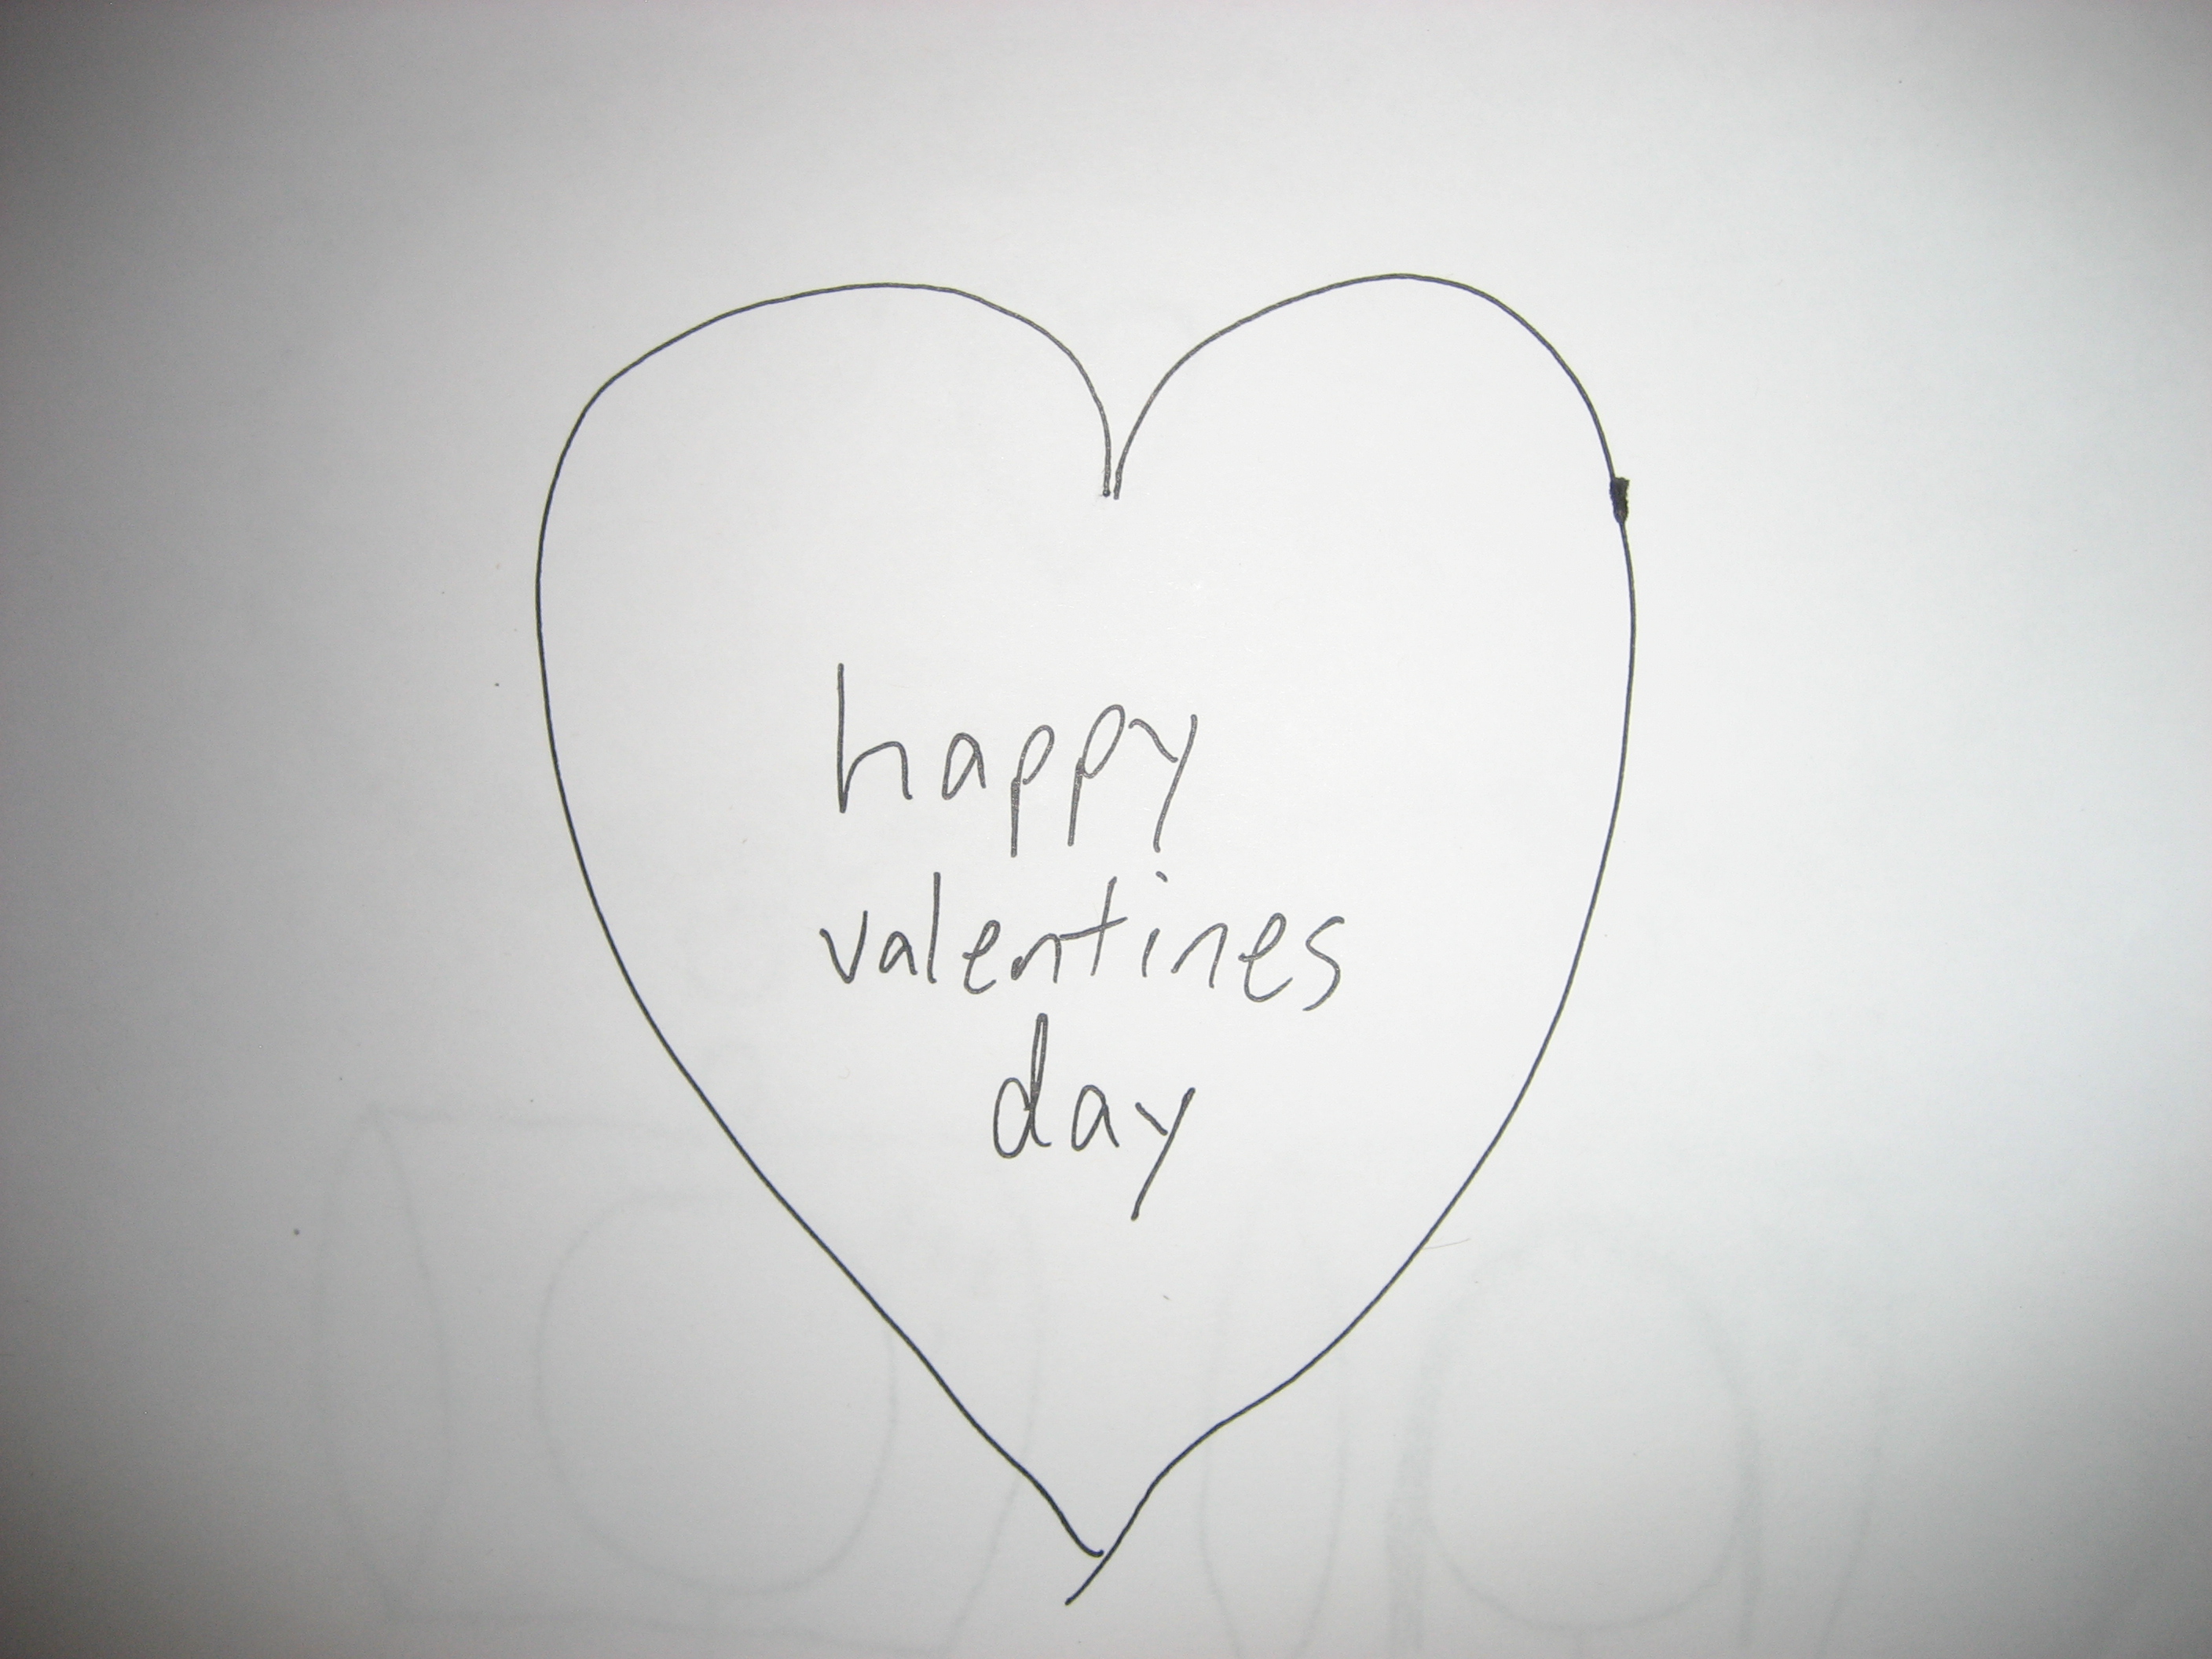 happy
valentines
day